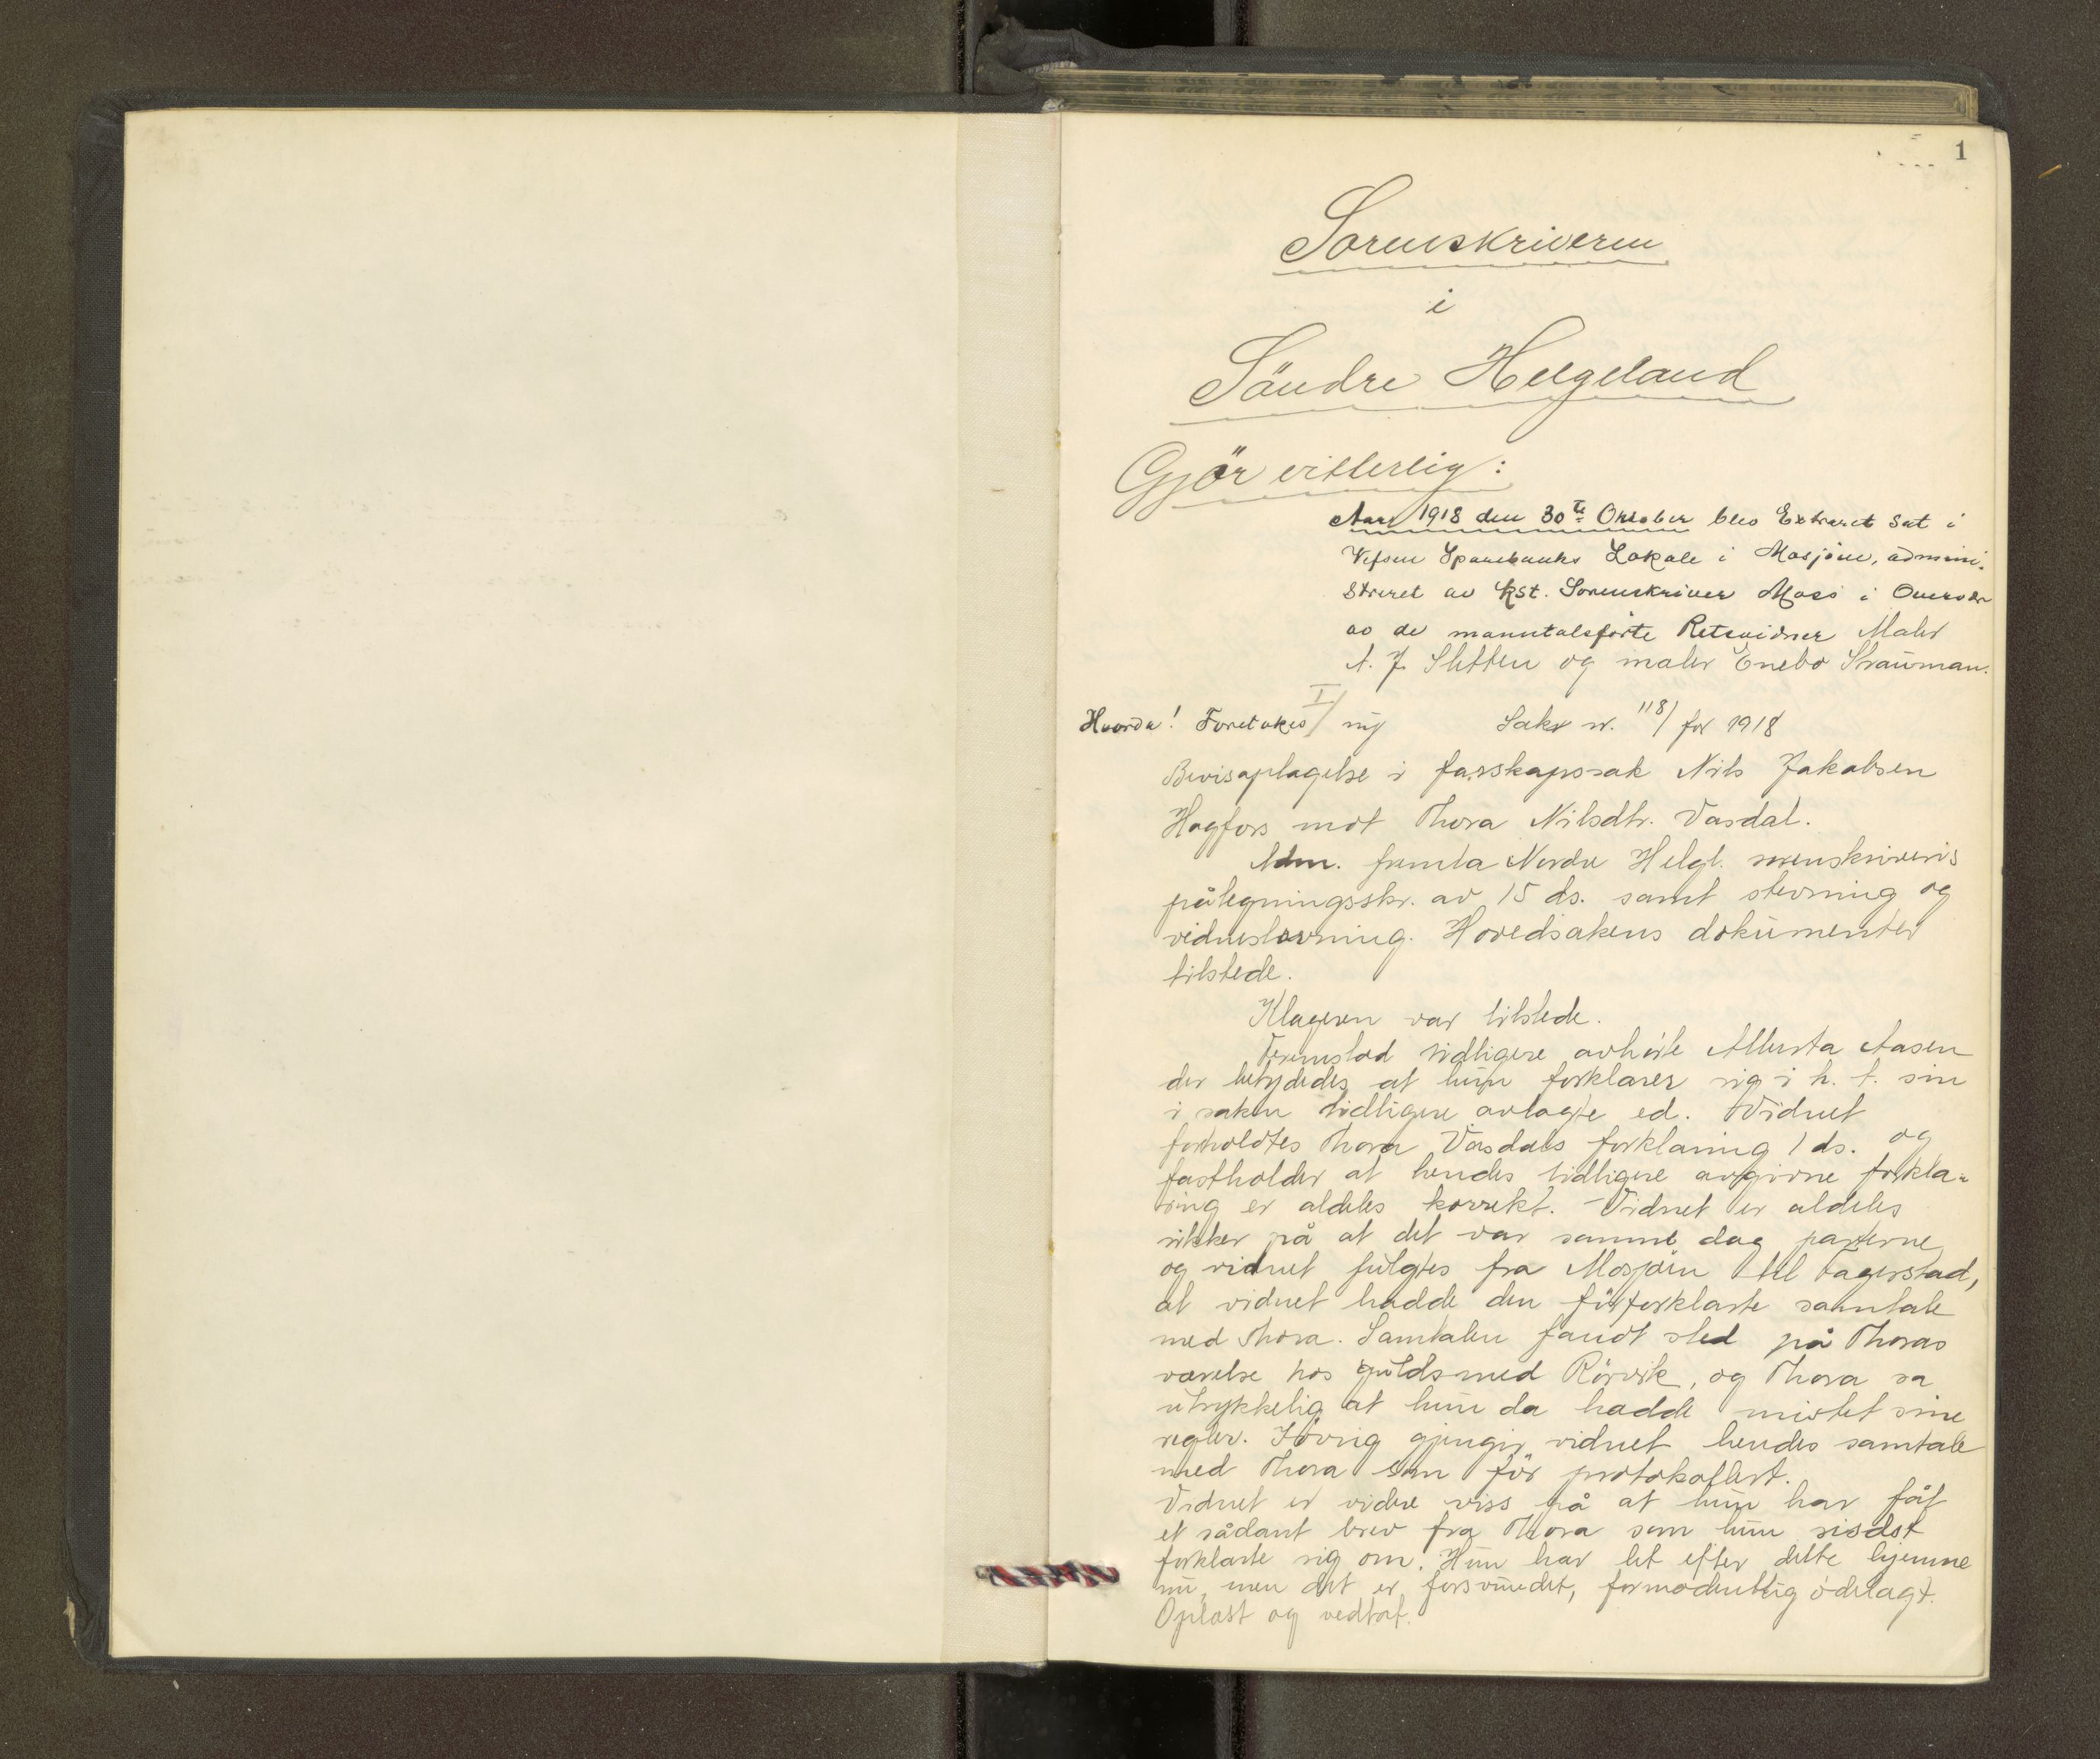 1
Sorenskriveren
i
Söndre Helgeland
Gjör vitterlig:
Aar 1918 den 30te Oktober blev Extraret sat i
Vefsen Sparebanks Lokale i Mosjöen, admini-
streret av kst. Sorenskriver Moss i Overvær
av de manntalsförte Retsvidner Maler
A. J. Sletten og maler Enebo Strauman.
Hvorda! Foretokes I/ ny Saks nr. 118/ for 1918
Bevisoptagelse i farskapssak Nils Jakobsen
Hagfors mot Thora Nilsdtr. Vasdal.
Adm. fremla Nordre Helgl. sorenskriveris
pålegningsskr. av 15 ds. samt stevning og
vidnestevning. Hovedsakens dokumenter
tilstede.
Klageren var tilstede.
Fremstod tidligere avhörte Alberta Aasen
der betydedes at hun forklarer sig i h. t. sin
i saken tidligere avlagte ed. Vidnet
forholdtes Thora Vasdals forklaring 1 ds. og
fastholder at hendes tidligere avgivne forkla-
ring er aldeles korrekt. Vidnet er aldeles
sikker på at det var samme dag parterne
og vidnet fulgtes fra Mosjöen til Fagerstad,
at vidnet hadde den förforklarte samtale
med Thora. Samtalen fandt sted på Thoras
værelse hos guldsmed Rörvik, og Thora sa
utrykkelig at hun da hadde mistet sine
regler. Iövrig gjengir vidnet hendes samtale
med Thora som för protokollert.
Vidnet er videre viss på at hun har fåt
et sådant brev fra Thora som hun sisdst
forklarte sig om. Hun har let efter dette hjemme
nu, men det er forsvundet, formodentlig ödelagt.
Oplæst og vedtat.